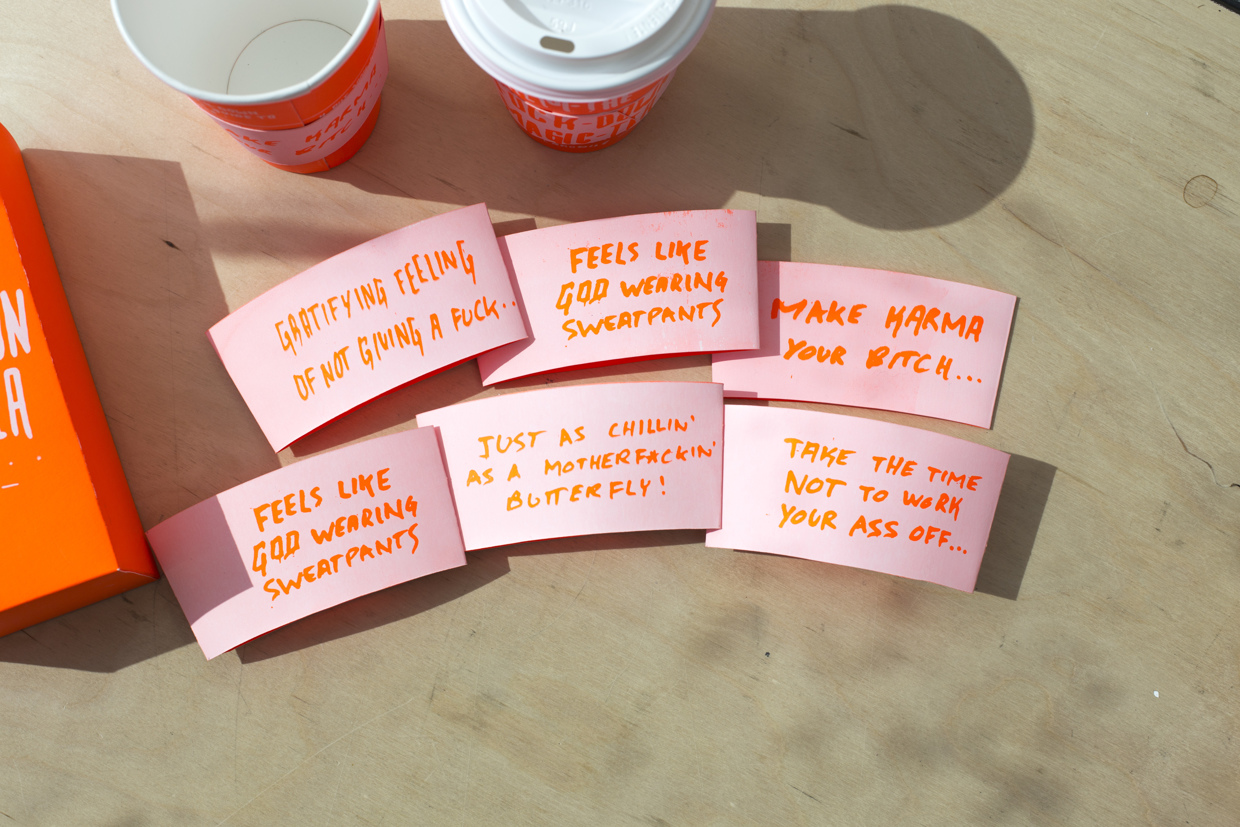 MAKE KARMA
BITCH
GRATIFYING FEELING
OF NOT GIVING A FUCK..
FEELS LIKE
GOD WEARING
SWEATPANTS
MAKE KARMA
YOUR BITCH...
FEELS LIKE
GOD WEARING
SWEATPANTS
JUST AS CHILLIN'
AS A MOTHERFACKIN'
BUTTERFLY!
TAKE THE TIME
NOT TO WORK
YOUR ASS OFF...